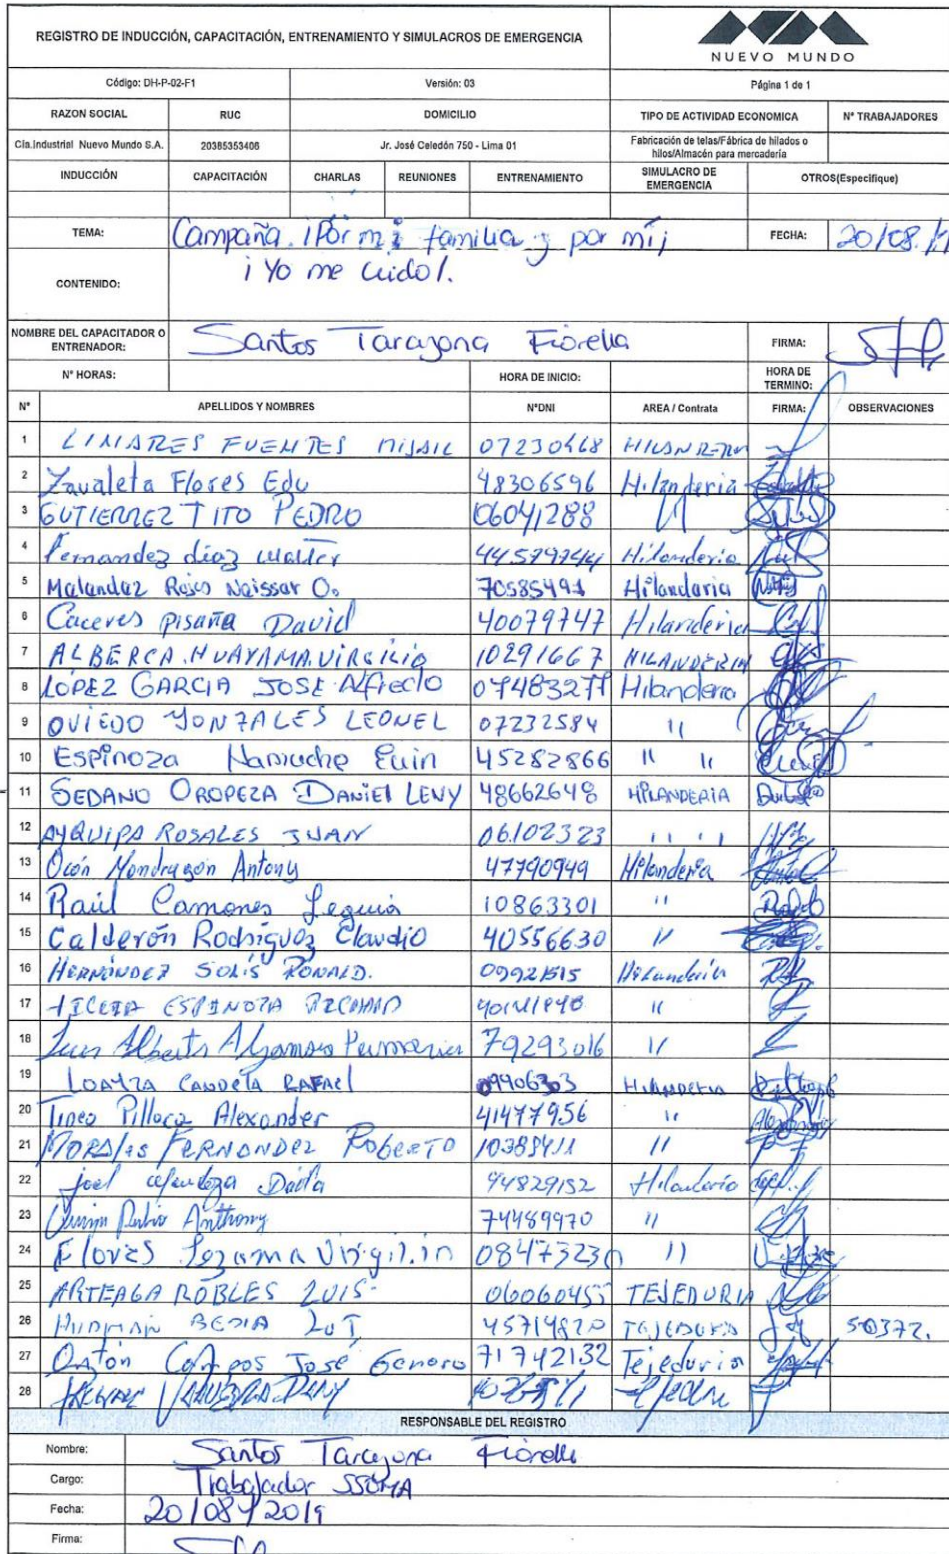 REGISTRO DE INDUCCIÓN, CAPACITACIÓN, ENTRENAMIENTO Y SIMULACROS DE EMERGENCIA
NUEVO MUNDO
Código: DH-P-02-F1 Versión: 03 Página 1 de 1
RAZON SOCIAL RUC DOMICILIO TIPO DE ACTIVIDAD ECONOMICA N° TRABAJADORES
Cia.Industrial Nuevo Mundo S.A. 20385353406 Jr. José Celedón 750 - Lima 01 Fabricación de telas/Fábrica de hilados o hilos/Almacén para mercadería
INDUCCIÓN CAPACITACIÓN CHARLAS REUNIONES ENTRENAMIENTO SIMULACRO DE EMERGENCIA OTROS(Especifique)
TEMA: Campaña ¡Por mi familia y por mí¡ FECHA: 20/08/
CONTENIDO: ¡Yo me cuido!.
NOMBRE DEL CAPACITADOR O ENTRENADOR: Santos Tarazona Fiorella FIRMA:
N° HORAS: HORA DE INICIO: HORA DE TERMINO:
N° APELLIDOS Y NOMBRES N°DNI AREA / Contrata FIRMA: OBSERVACIONES
1 LINARES FUENTES MISAIL 07230468
2 Zavaleta Flores Edu 48306596 Hilanderia
3 GUTIERREZ TITO PEDRO 06041288 "
4 Fernandez diaz walter Hilanderia
5 70585491 Hilandaria
6 Caceres David 40079747 Hilanderia
7 ALBERCA.HUAYAMA.VIRGILIO 10291667 HILANDERIA
8 LOPEZ GARCIA JOSE Alfredo Hilanderia
9 OVIEDO GONZALES LEONEL 07232584 "
10 Espinoza 45282866 " "
11 SEDANO OROPEZA DANIEL LEVY 48662648 HILANDERIA
12 AYQUIPA ROSALES JUAN 06102323 " "
13 Ocón Mondragon Antony 47790949 Hilanderia
14 Raúl Camones Leguia 10863301 "
15 Calderón Rodríguez Claudio 40556630 "
16 HERNÁNDEZ SOLÍS RONALD.
17 ESPINOZA "
18 Luis Alberto 79293016 "
19 LOAYZA CANDELA RAFAEl HILANDERIA
20 Tineo Pillaca Alexander 41477956 "
21 MORALES FERNANDEZ ROBERTO "
22 Joel 44829152 Hilanderia
23 Anthony 74489970 "
24 Flores Lezama Virgilio "
25 ARTEAGA ROBLES LUIS TEJEDURIA
26 50372.
27 José Genaro 71742132 Tejeduria
28
RESPONSABLE DEL REGISTRO
Nombre: Santos Tarazona Fiorella
Cargo: Trabajador SSOMA
Fecha: 20/08/2019
Firma: